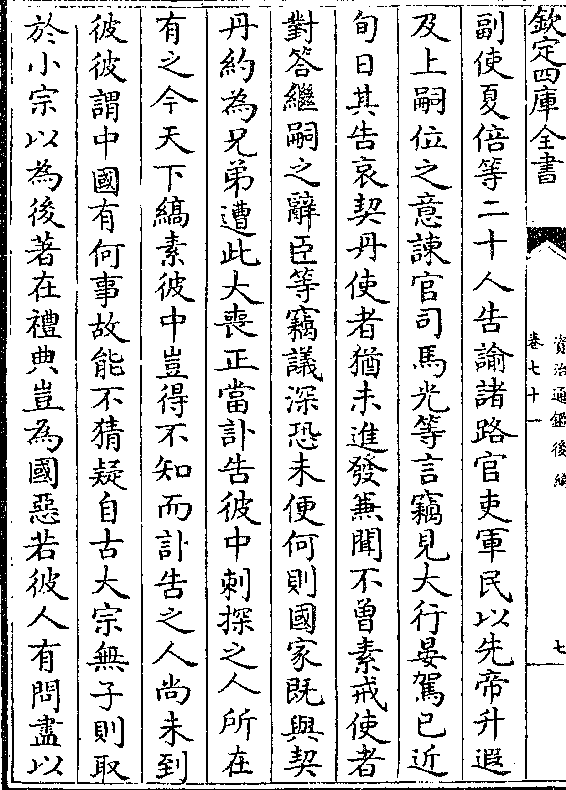 欽定四庫全書
資治通鑑後編
卷七十一
七
副使夏倍等二十人告諭諸路官吏軍民以先帝升遐
及上嗣位之意諫官司馬光等言竊見大行晏駕已近
旬日其告哀契丹使者猶未進發兼聞不曾素戒使者
對答繼嗣之辭臣等竊議深恐未便何則國家既與契
丹約為兄弟遭此大喪正當訃告彼中刺探之人所在
有之今天下縞素彼中豈得不知而訃告之人尚未到
彼彼謂中國有何事故能不猜疑自古大宗無子則取
於小宗以為後著在禮典豈為國惡若彼人有問盡以